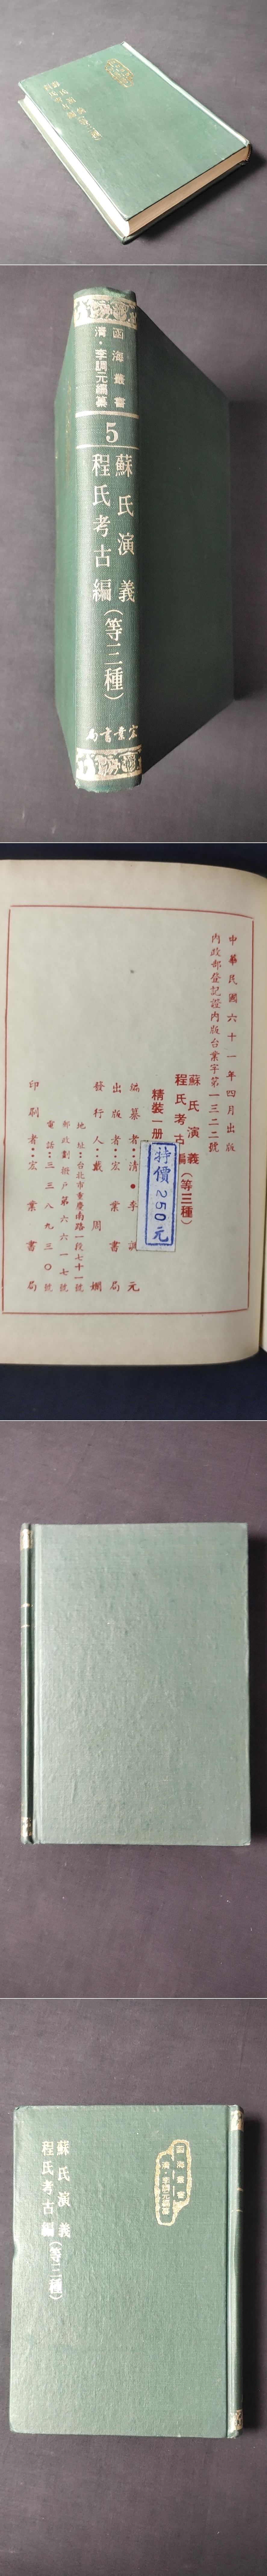 函海叢書
清·李調元編纂
5
蘇氏演義
程氏考古編
(等三種)
宏業書局
中華民國六十一年四月出版
內政部登記證內版台業字第一三二二號
蘇氏演義
程氏考古編(等三種)
精裝一冊
特價250元
編纂者:清·李調元
出版者:宏業書局
發行人:戴周嫻
地址:台北市重慶南路一段七十一號
郵政劃撥戶第六六一七號
電話:三三八九三〇號
印刷者:宏業書局
函海叢書
清·李調元編纂
蘇氏演義
程氏考古編(等三種)